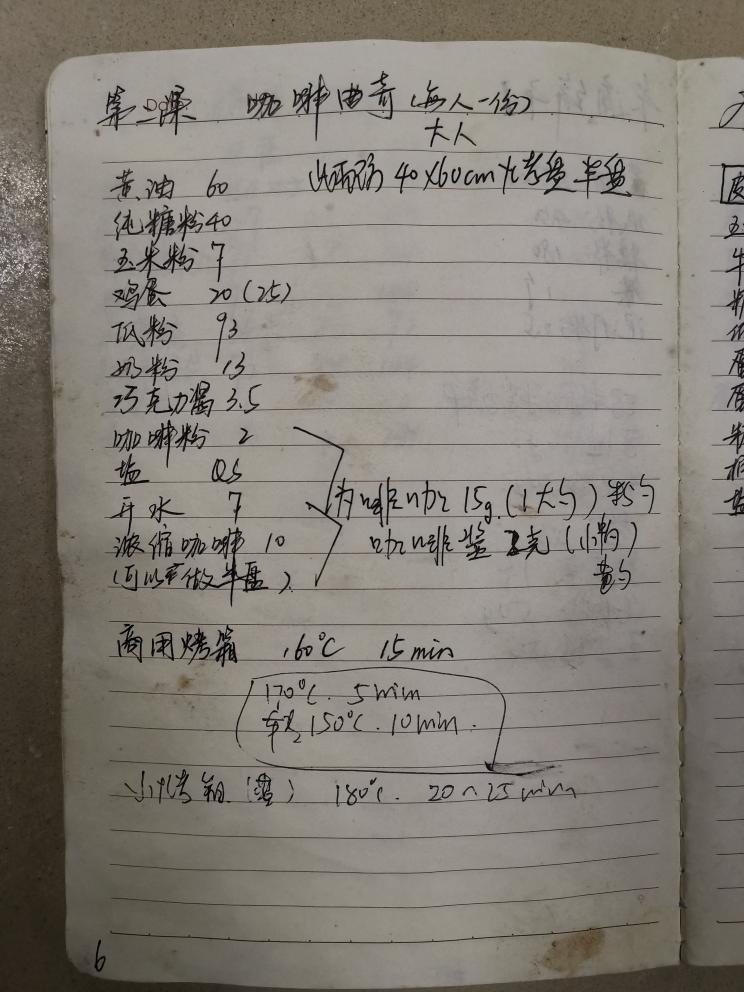 第二课 咖啡曲奇(每人一份)
大人
黄油 60 此配方40×60cm烤盘半盘
纯糖粉40
玉米粉 7
鸡蛋 20(25)
低粉 93
奶粉 13
巧克力酱 3.5
咖啡粉 2
盐 QS
开水 7
浓缩咖啡 10
(可以做半盘)
为啡咖 15g.(1大勺)
咖啡 克(小勺)
商用烤箱 160℃ 15min
170℃. 5min
150℃. 10min.
小烤箱() 180℃. 20~25min
6